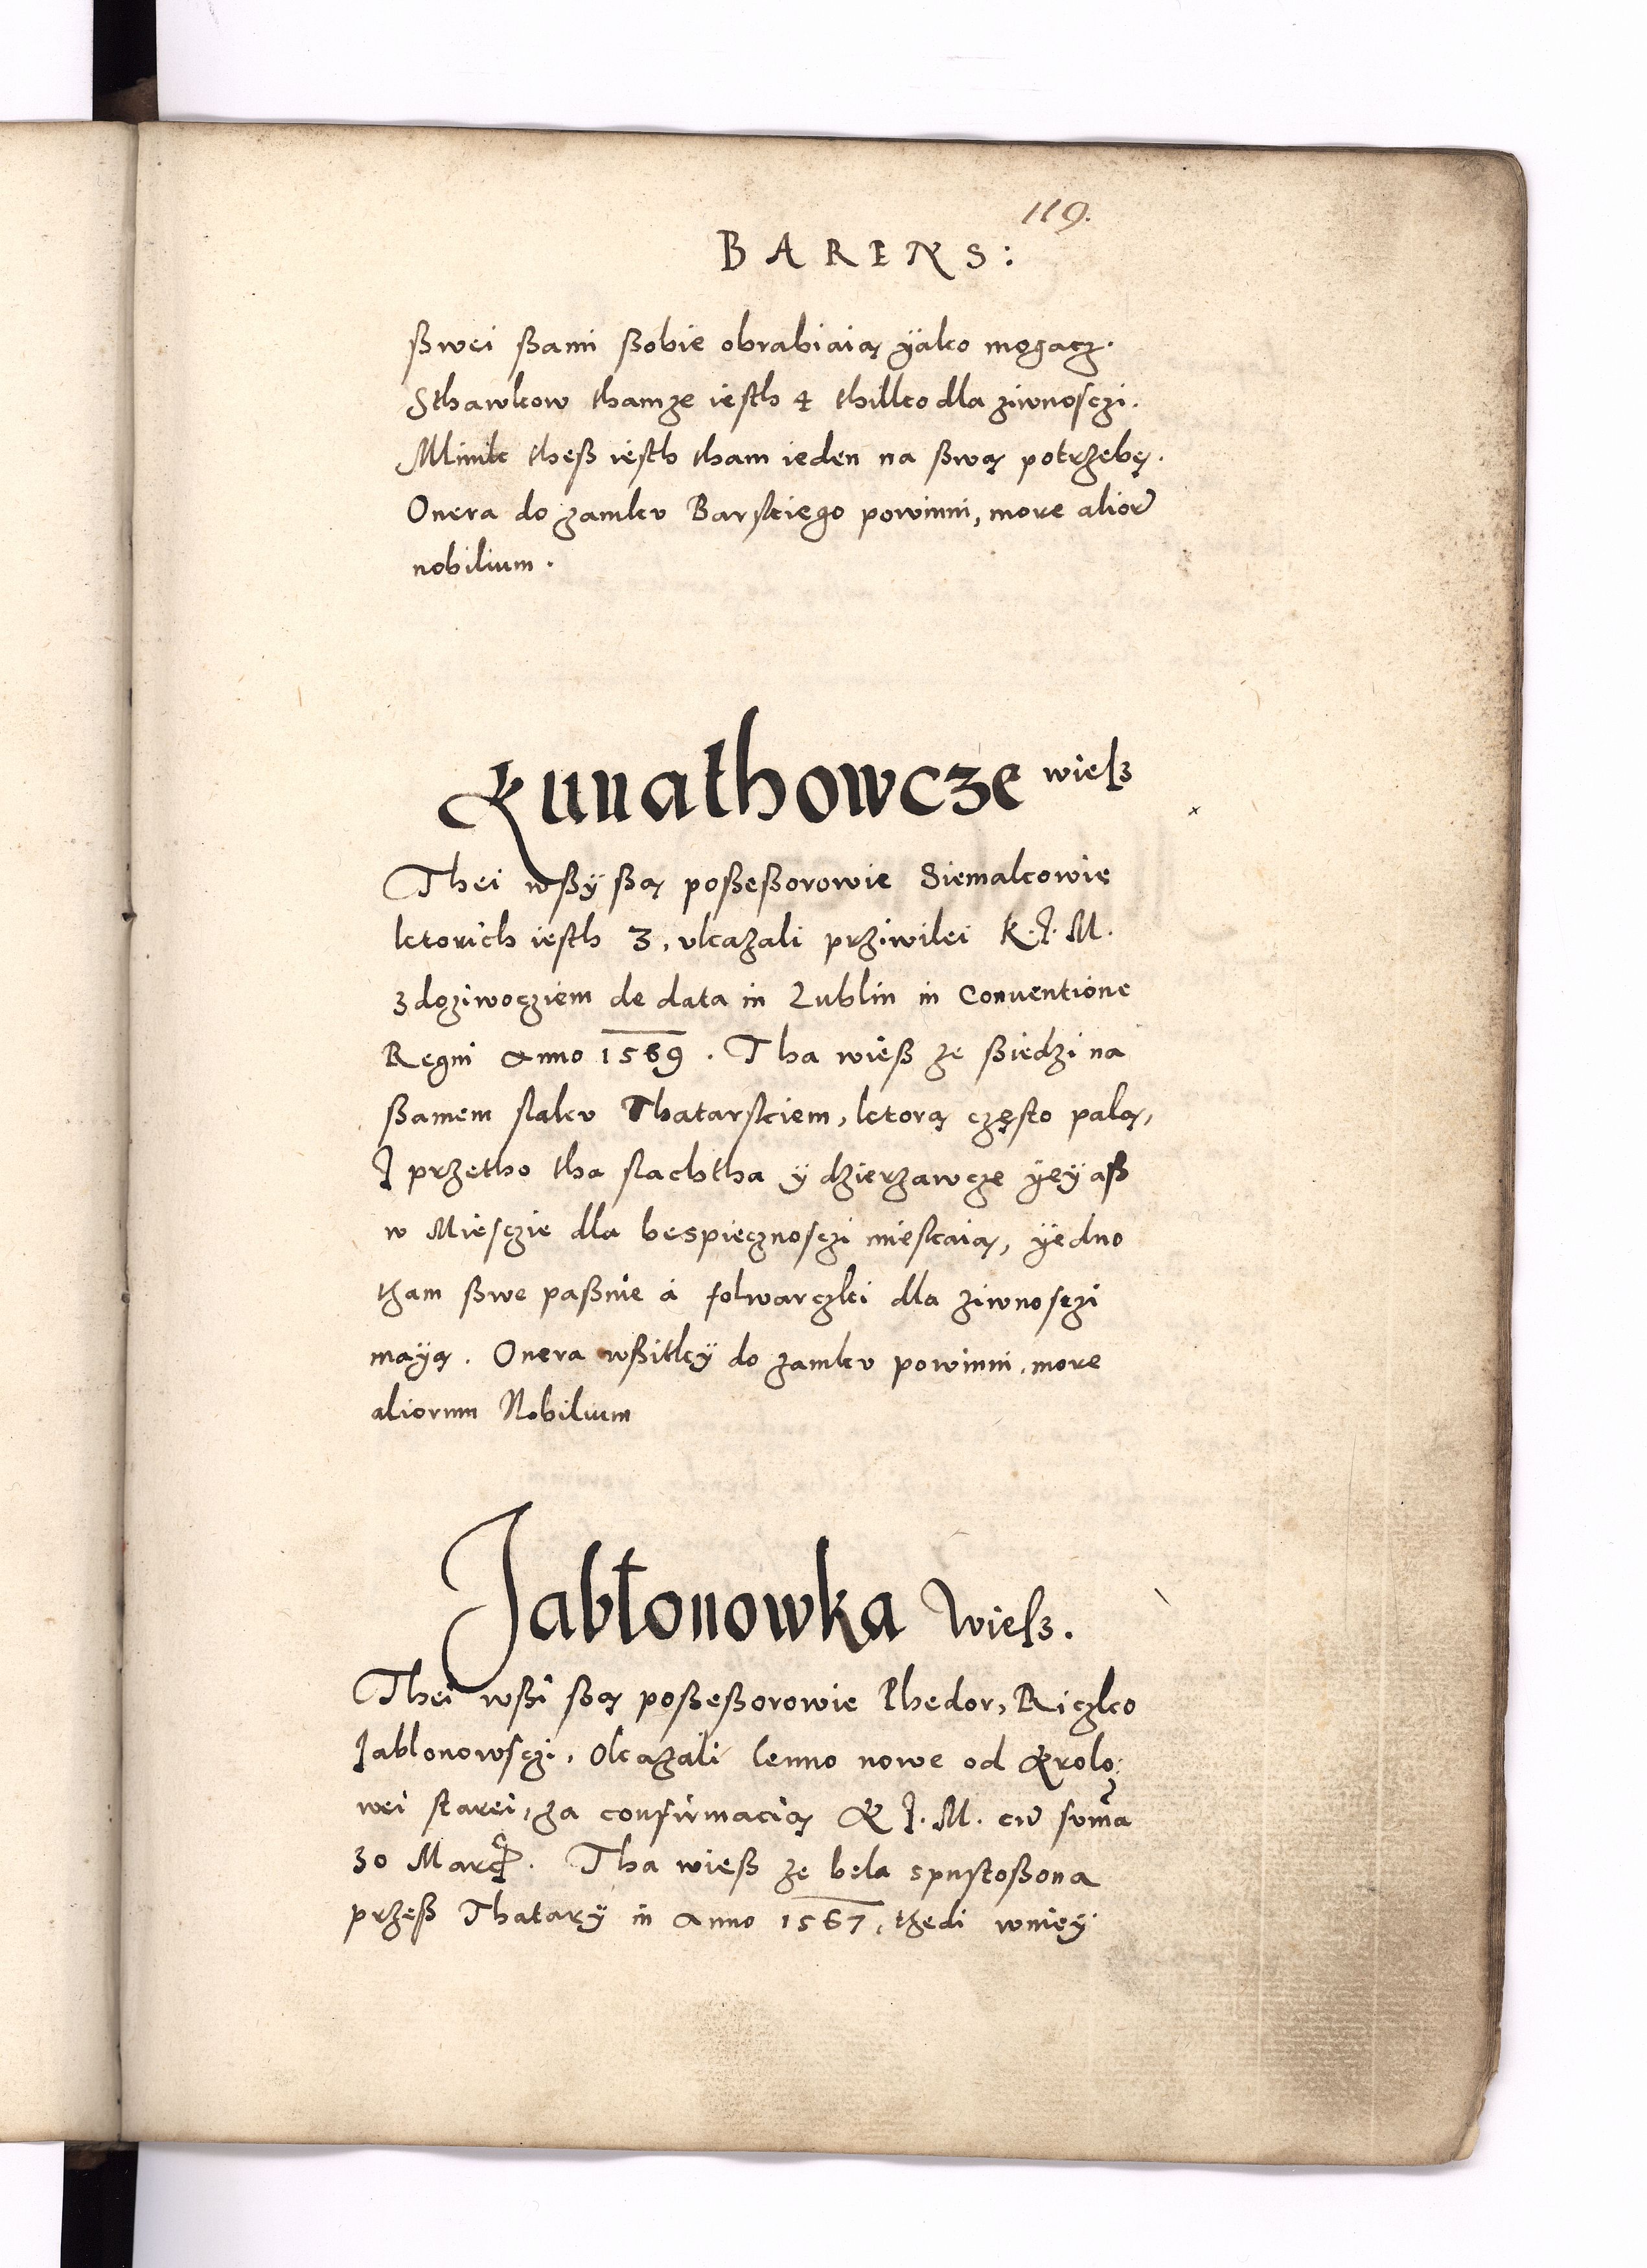 119.
BARENS:
ßwei ßami ßobie obrabiaią ÿako mogącz.
Sthawkow thamze iesth 4 thilko dla ziwnosczi.
Mlinik theß iesth tham ieden na ßwą potrzebę.
Onera do zamku Barskiego powinni, more alior̃
nobilium.
Kunathowcze wiesz
Thei wßÿ ßą poßeßorowie Siemakowię
ktorich iesth 3, ukazali przÿwilei K. J. M.
z doziwoczięm de data in Lublin in Conuentione
Regni Anno 1569. Tha wieß ze ßiedzi na
ßamem slaku Thatarskiem, ktorą często palą,
J przetho tha slachtha y dzierzawcze ÿeÿ aß
w Miesczie dla bespiecznosczi mieskaią, ÿedno
tham ßwe paßnie á folwarczki dla ziwnosczi
mayą. Onera wßitkÿ do zamku powinni, more
aliorum Nobilium
Jabłonowka Wiesz.
Thei wßi ßą poßeßorowie Phedor, Riczko
Jablonowsczi, Vkazali lenno nowe od Krolo:
wei starei, za confirmacią K J. M. cũ som̃a
30 Marcꝝ. Tha wieß ze bela spustoßona
przeß Thatarÿ in Anno 1567, thedi wnieÿ